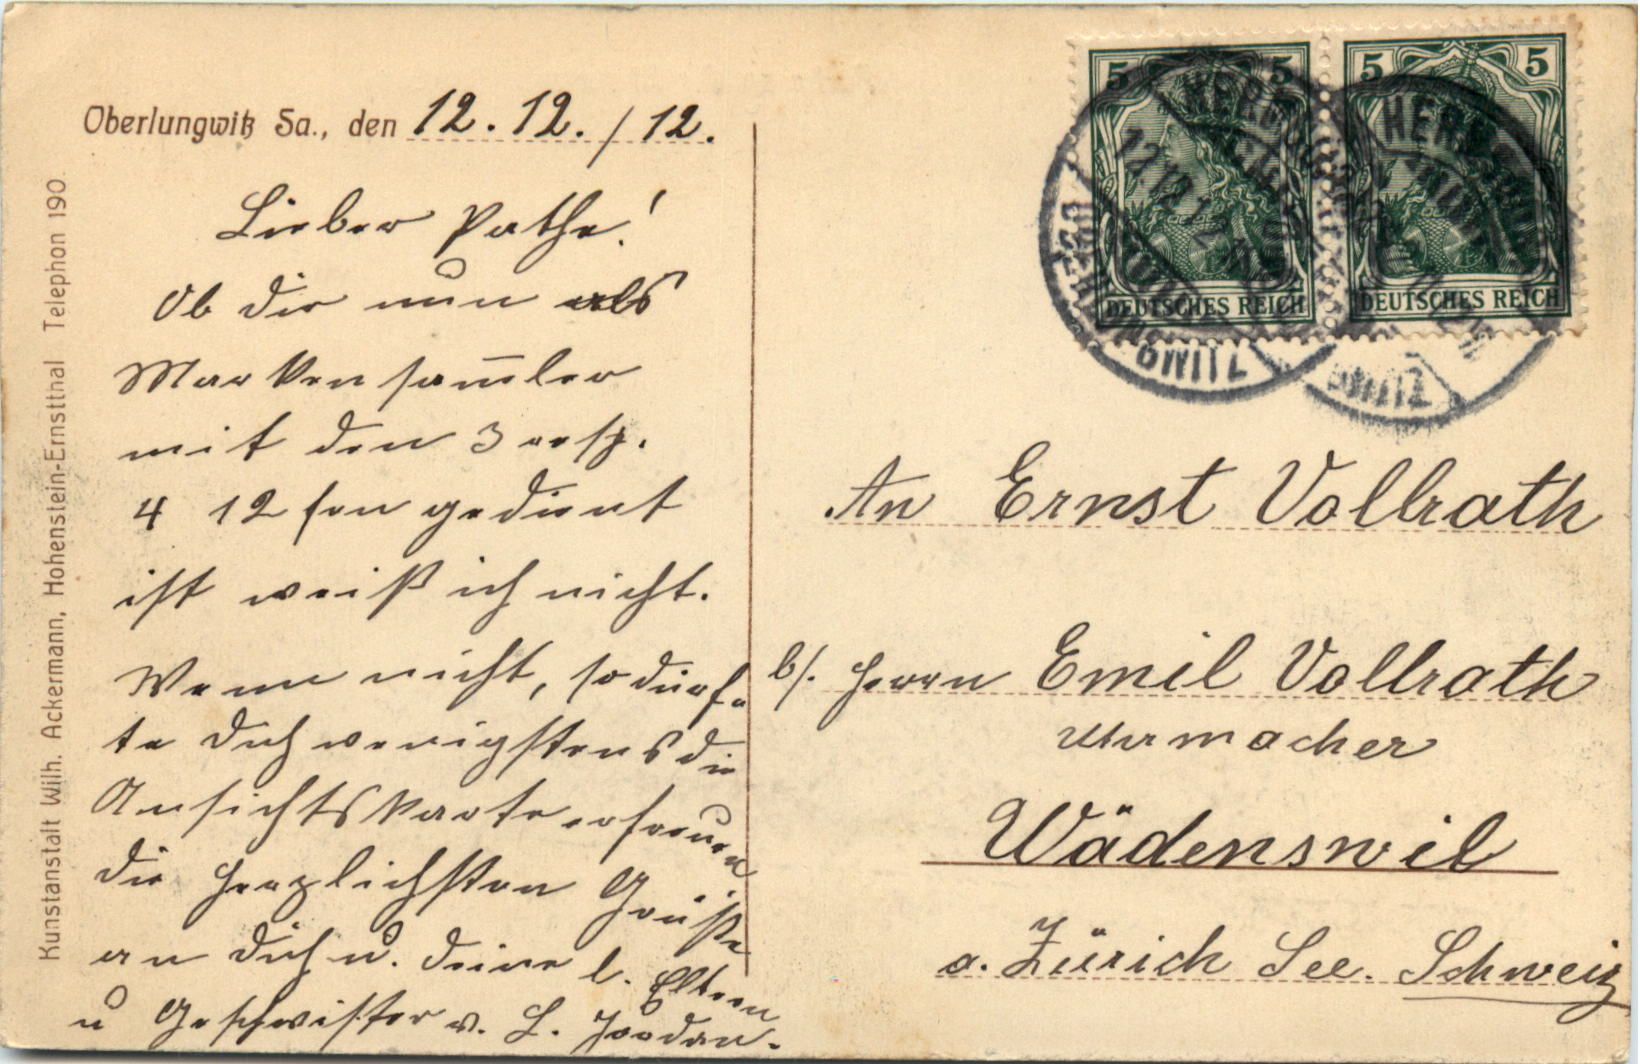 Oberlungwitz Sa., den 12. 12. / 12.
Lieber Pathe!
Ob dir nun als
Markensam̅ler
mit den 3 resp.
4 12
gedient
ist weiß ich nicht.
Wenn nicht, so dürf-
te dich wenigstens die
Ansichtskarte erfreuen
die herzlichsten Grüße
an dich u. deine l. Eltern
u Geschwister v. L. Jordan.
Kunstanstalt Wilh. Ackermann, Hohenstein-Ernstthal Telephon 190.
5 5
DEUTSCHES REICH
5 5
DEUTSCHES REICH
12.12.12
An Ernst Vollrath
b/. Herrn Emil Vollrath
Uhrmacher
Wädenswil
a. Zürich See. Schweiz